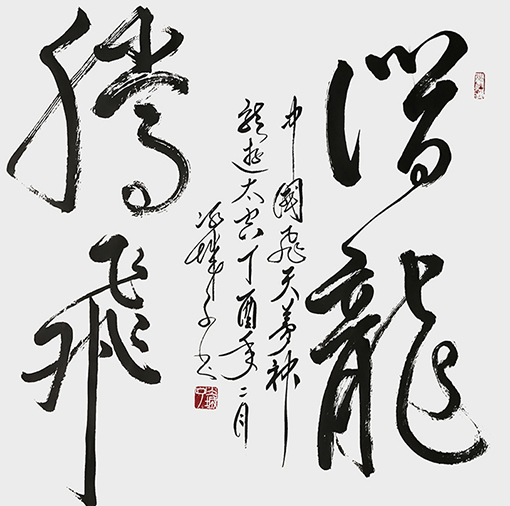 潜龍
騰飛
中國飛天夢神
龍遊太空丁酉年二月